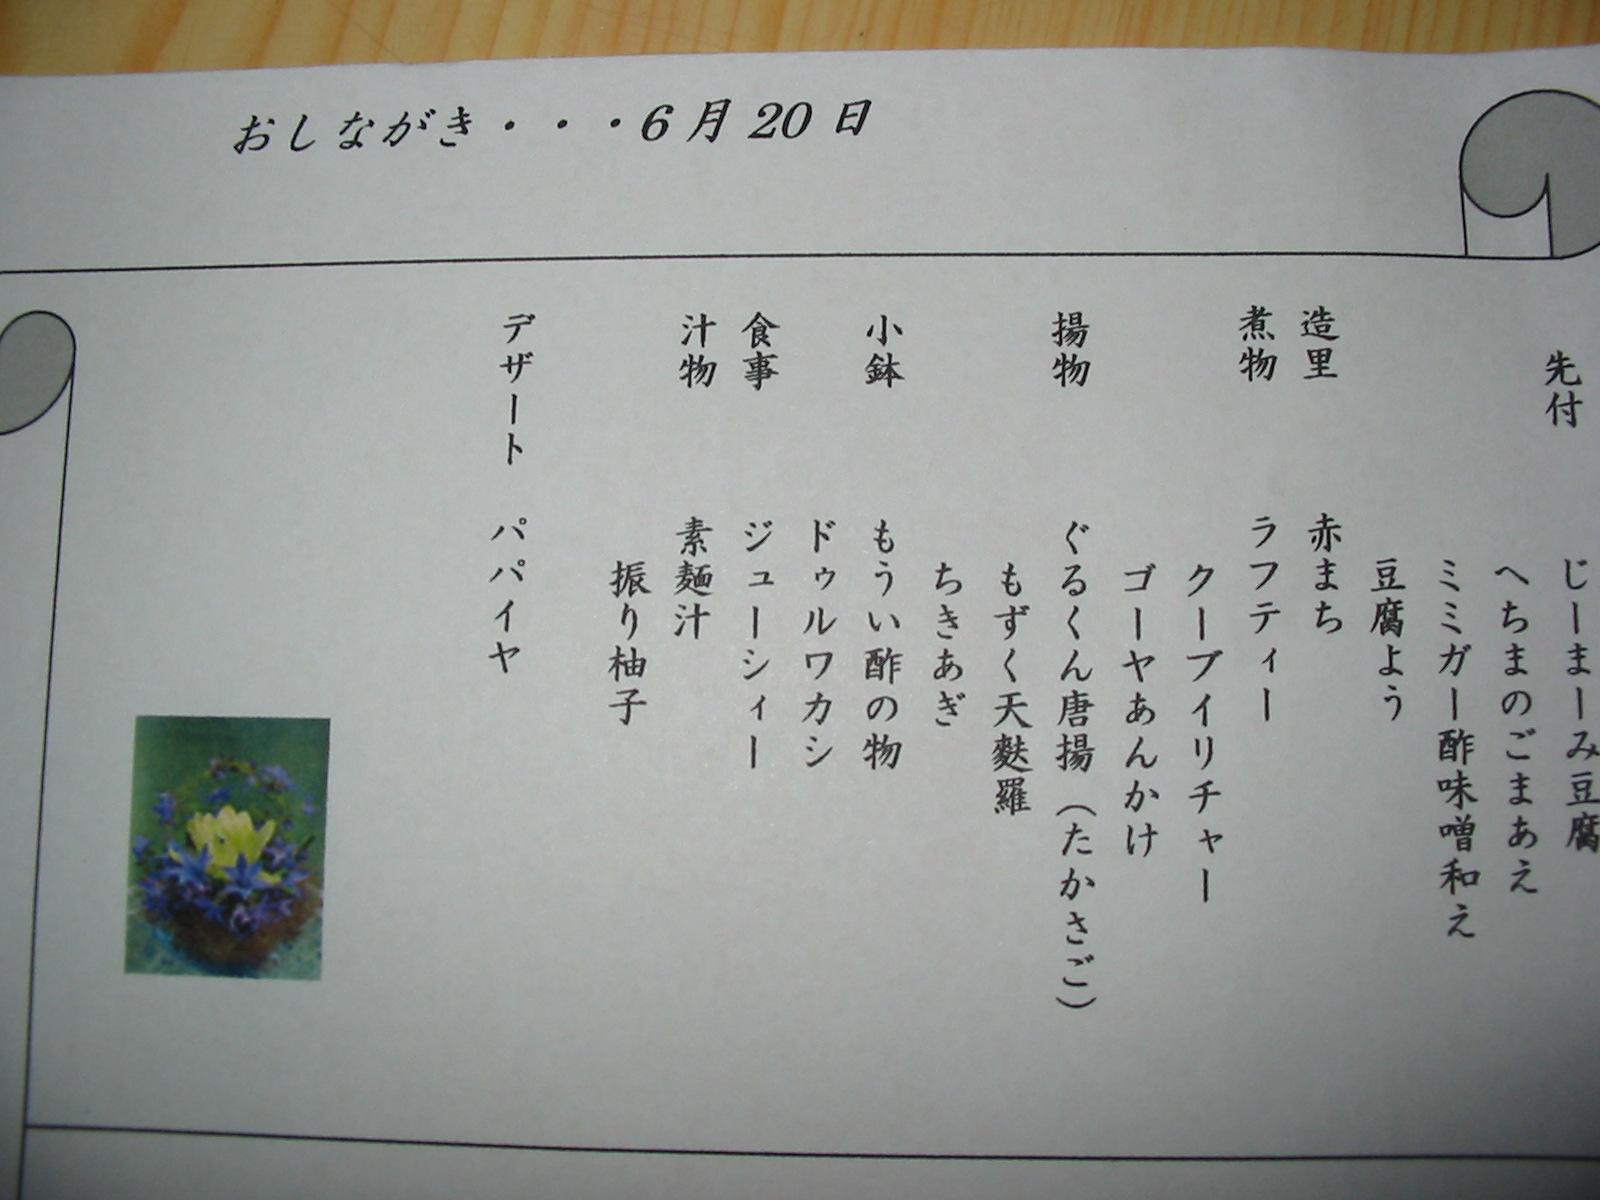 おしながき・・・6月20日
先付
じーまーみ豆腐
へちまのごまあえ
ミミガー酢味噌和え
豆腐よう
造里 赤まち
煮物 ラフティー
クーブイリチャー
ゴーヤあんかけ
揚物 ぐるくん唐揚（たかさご）
もずく天麩羅
ちきあぎ
小鉢 もうい酢の物
ドゥルワカシ
食事 ジューシィー
汁物 素麺汁
振り柚子
デザート パパイヤ